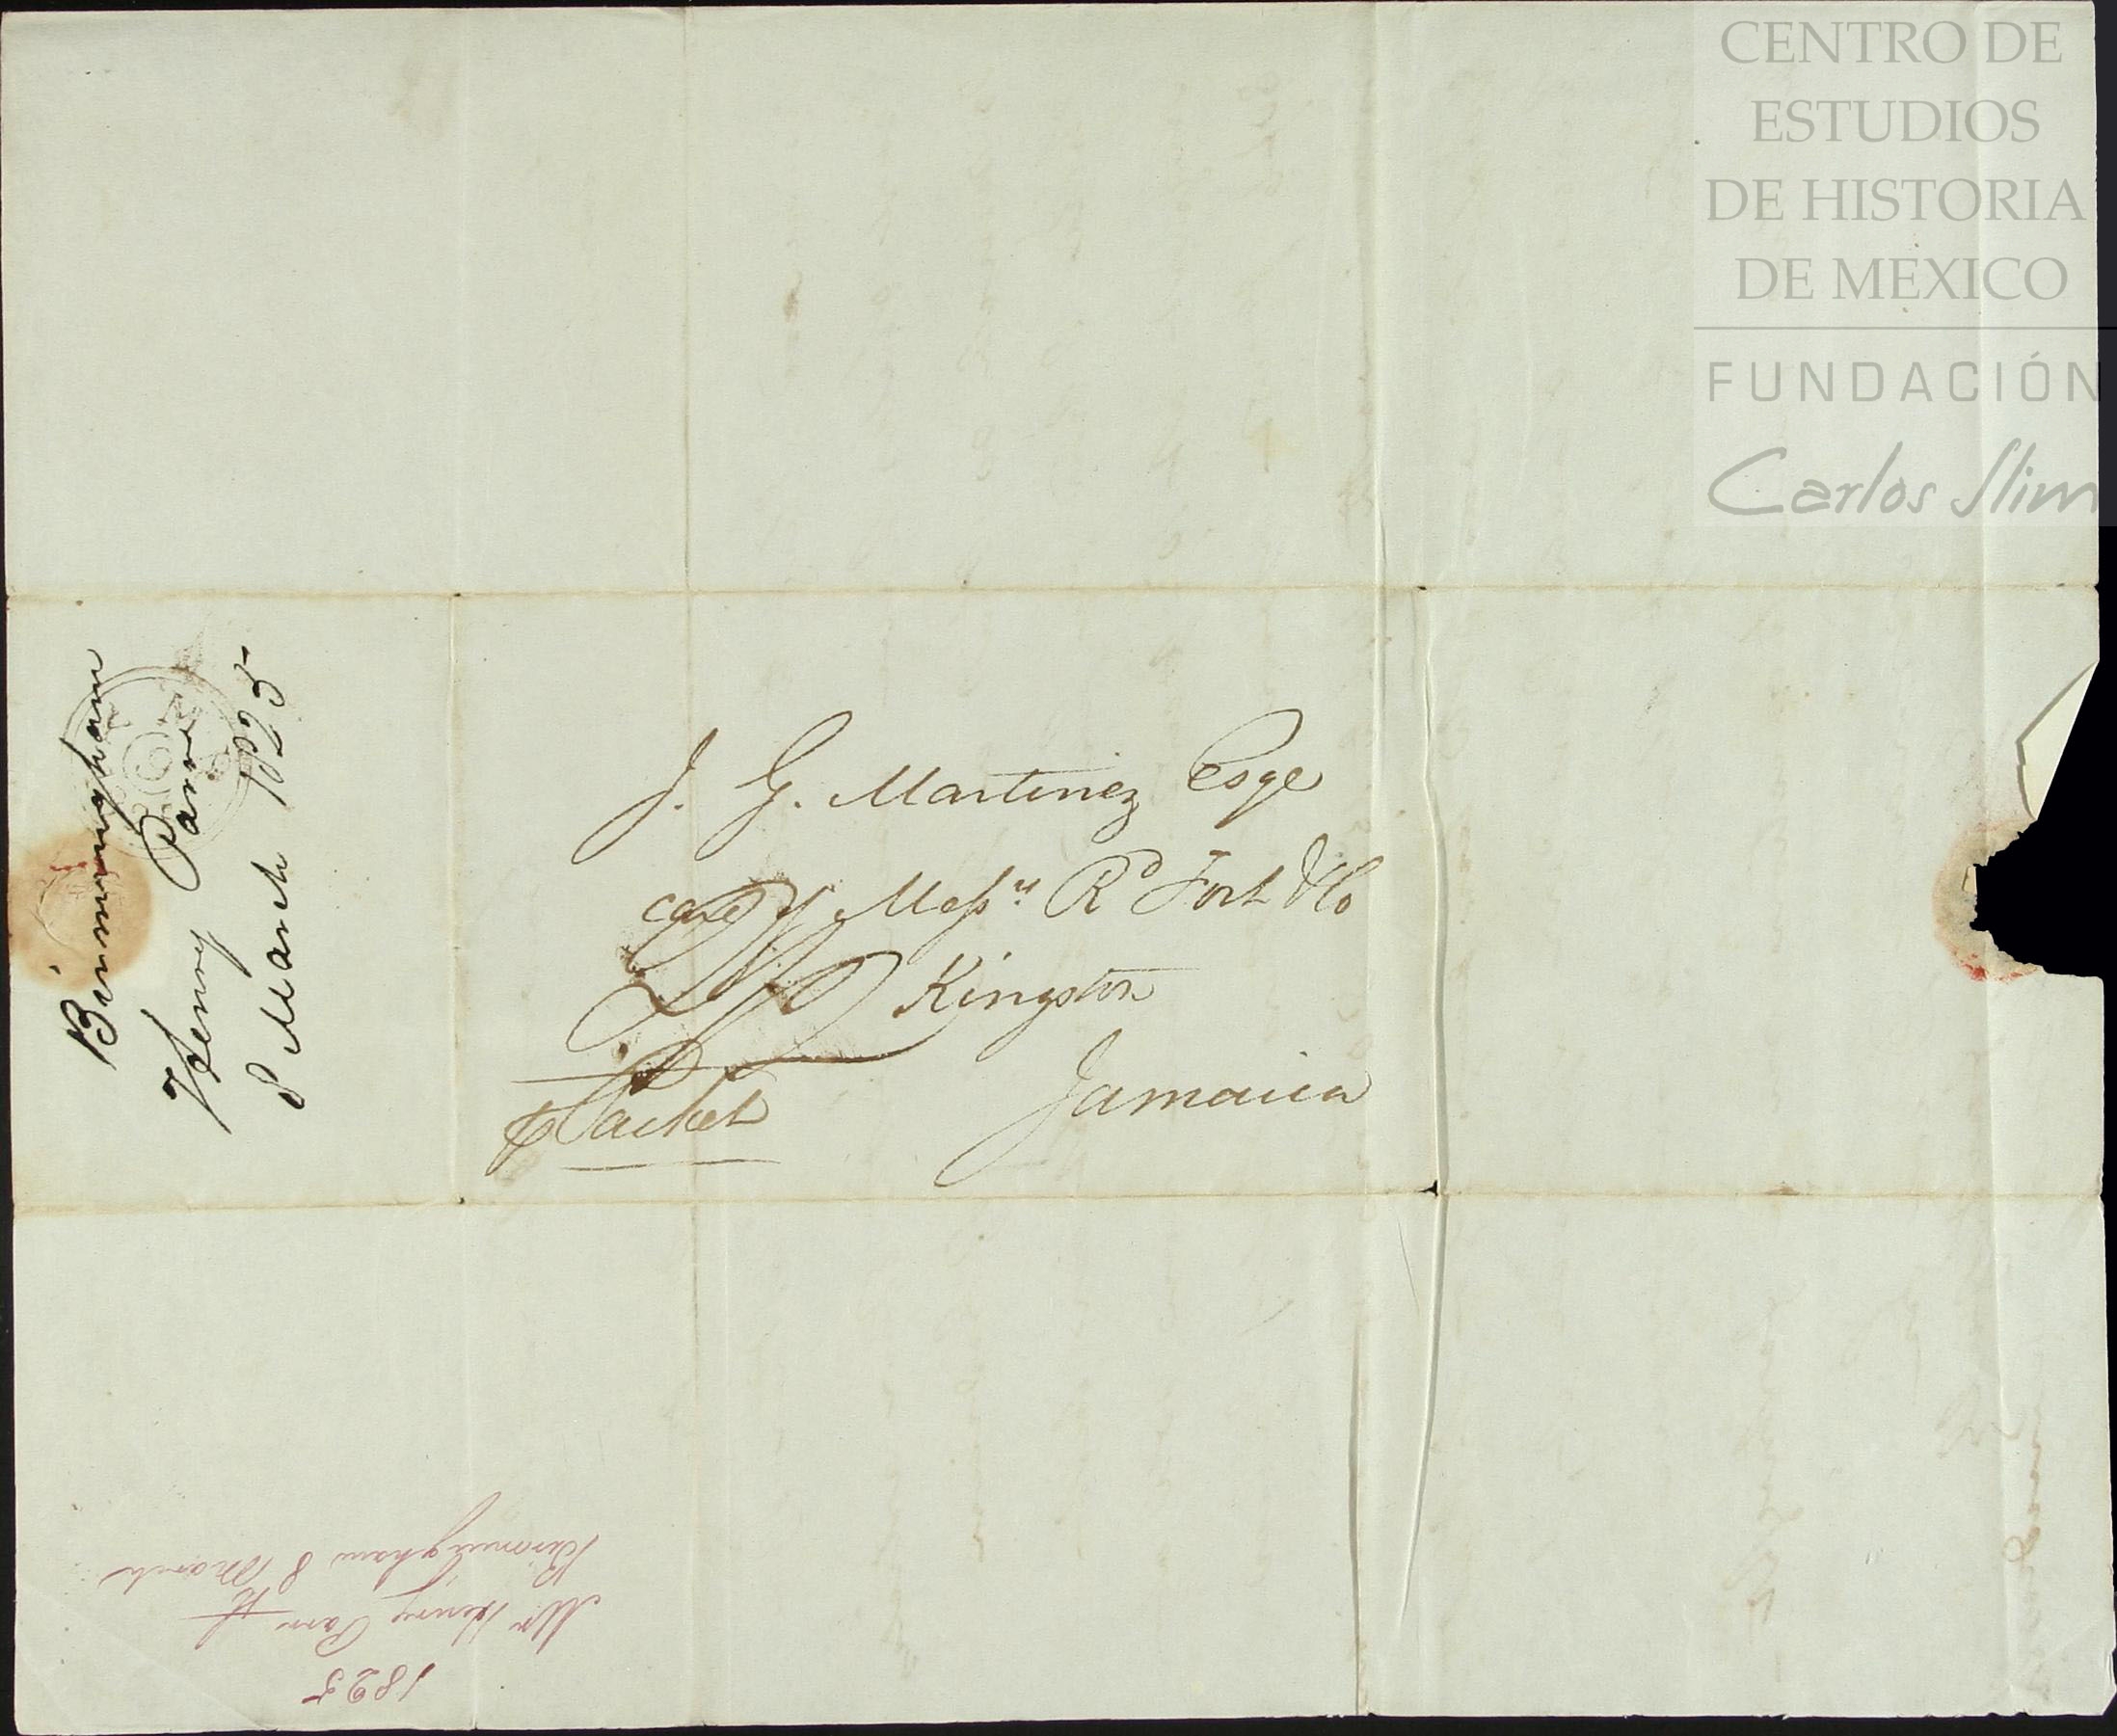 CENTRO DE
ESTUDIOS
DE HISTORIA
DE MÉXICO
FUNDACIÓN
Carlos Slim
Birmingham
Henry Parr
8 March 1825
J. G. Martinez Esqe
care of Messrs Rd Fort & Co
Kingston
Jamaica
⅌ Packet
1825
Mr Henry Parr
Birmingham 8 March